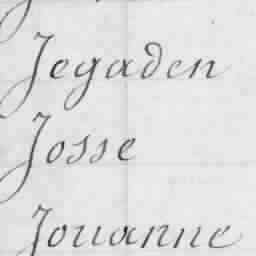 Jegaden
Josse
Jouanne